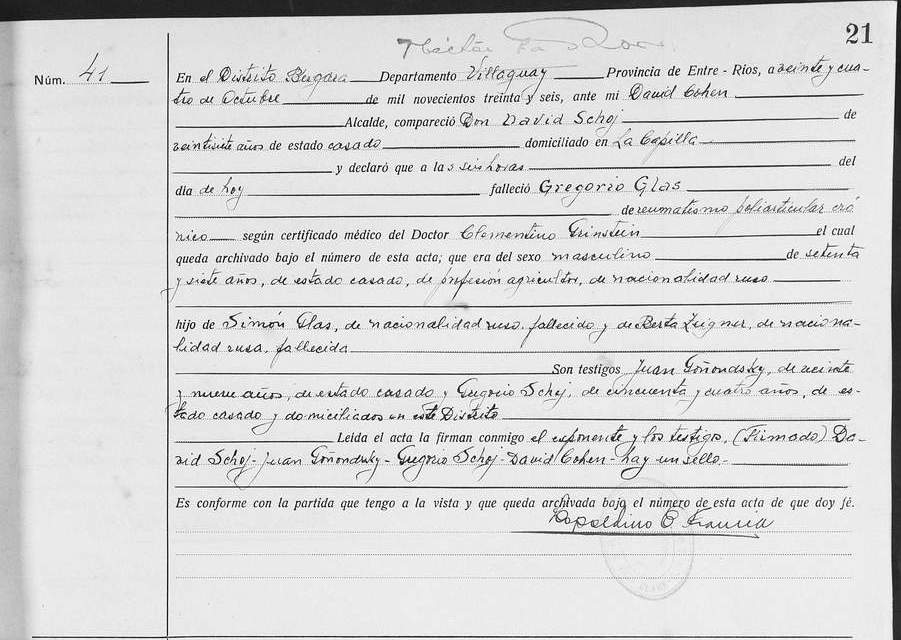 21
Núm. 41
En el Distrito Bergara Departamento Villaguay Provincia de Entre - Rios, a veinte y cua-
tro de Octubre de mil novecientos treinta y seis, ante mi David Cohen
Alcalde, compareció Don David Schoj de
veintisiete años de estado casado domiciliado en La Capilla
y declaró que a las seis horas del
dia de hoy falleció Gregorio Glas
de reumatismo poliarticular cró
nico según certificado médico del Doctor Clementino Grinstein el cual
queda archivado bajo el número de esta acta; que era del sexo masculino de setenta
y siete años, de estado casado, de profesión agricultor, de nacionalidad ruso
hijo de Simón Glas, de nacionalidad ruso, fallecido y de Berta Zeigner, de naciona-
lidad rusa, fallecida
Son testigos Juan Goñondsky, de veinte
y nueve años, de estado casado y Gregorio Schoj, de cincuenta y cuatro años, de es-
tado casado y domiciliados en este Distrito
Leida el acta la firman conmigo el exponente y los testigos, (Firmado) Da-
vid Schoj - Juan Goñondsky - Gregorio Schoj - David Cohen - hay un sello.-
Es conforme con la partida que tengo a la vista y que queda archivada bajo el número de esta acta de que doy fé.